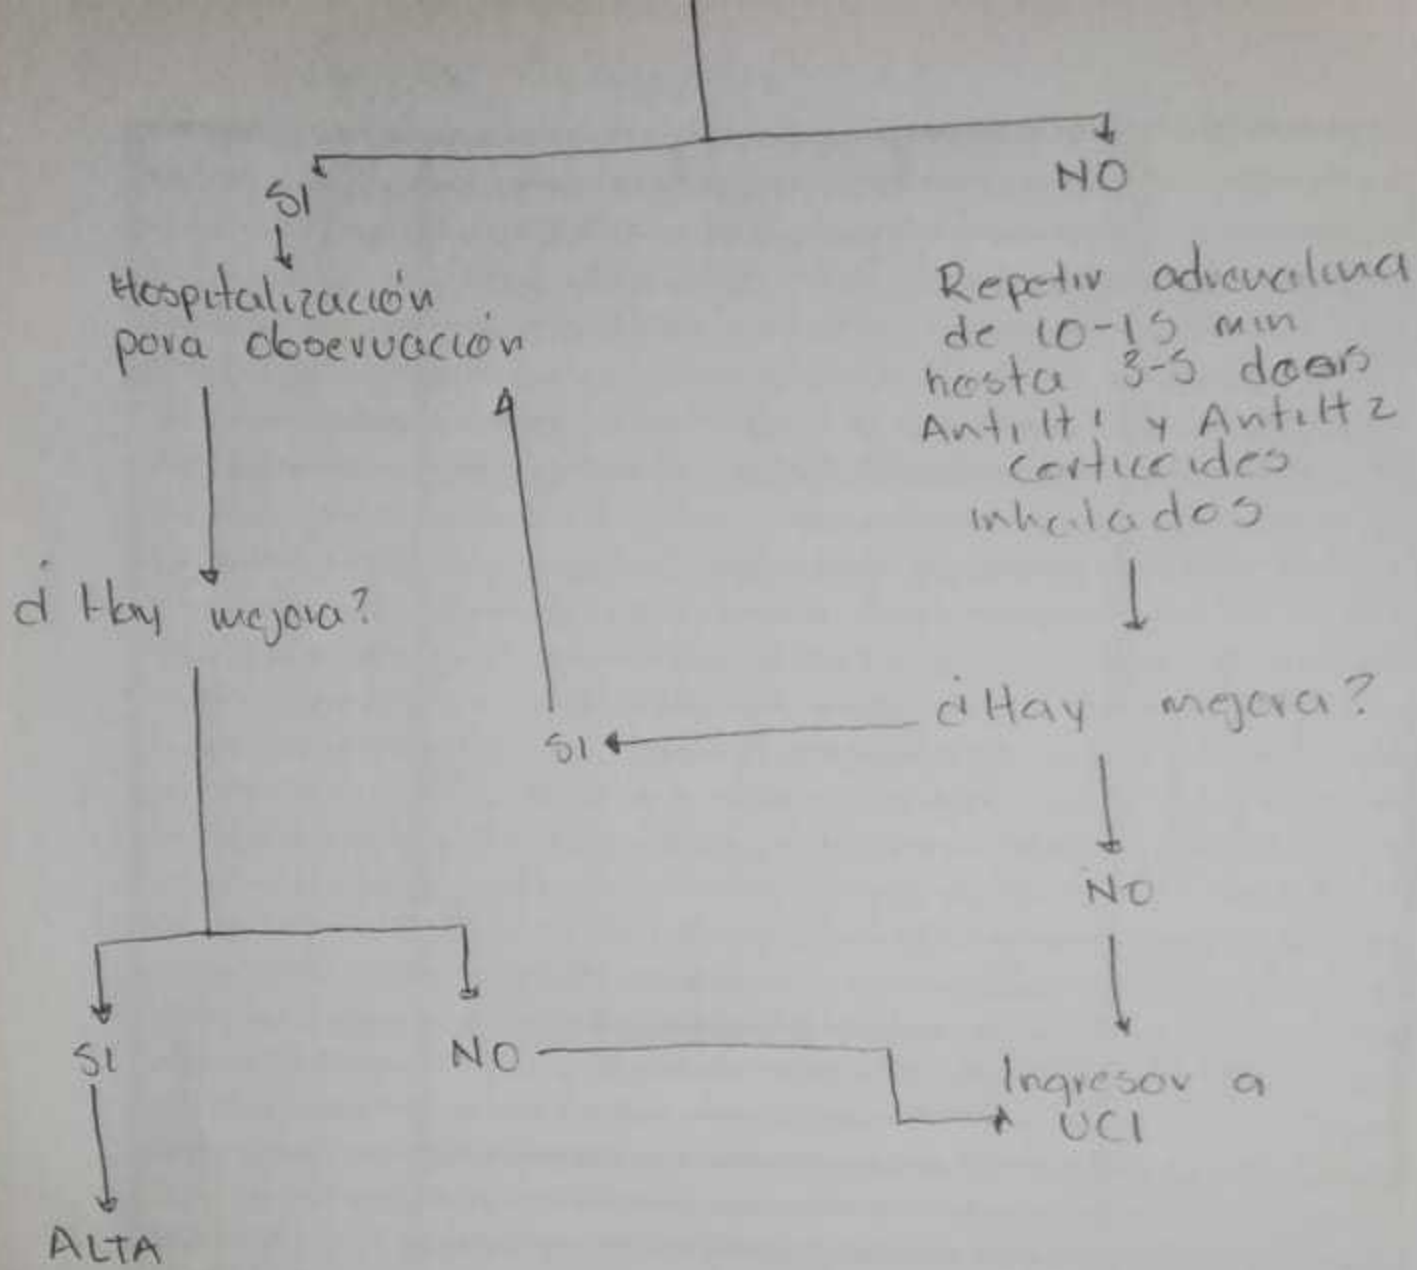 SI
NO
Hospitalización
para observación
Repetir adrenalina
de 10-15 min
hasta 3-5 dosis
Anti H1 y Anti H2
corticoides
inhalados
¿Hay mejora?
¿Hay mejora?
SI
NO
SI
NO
Ingresar a
UCI
ALTA